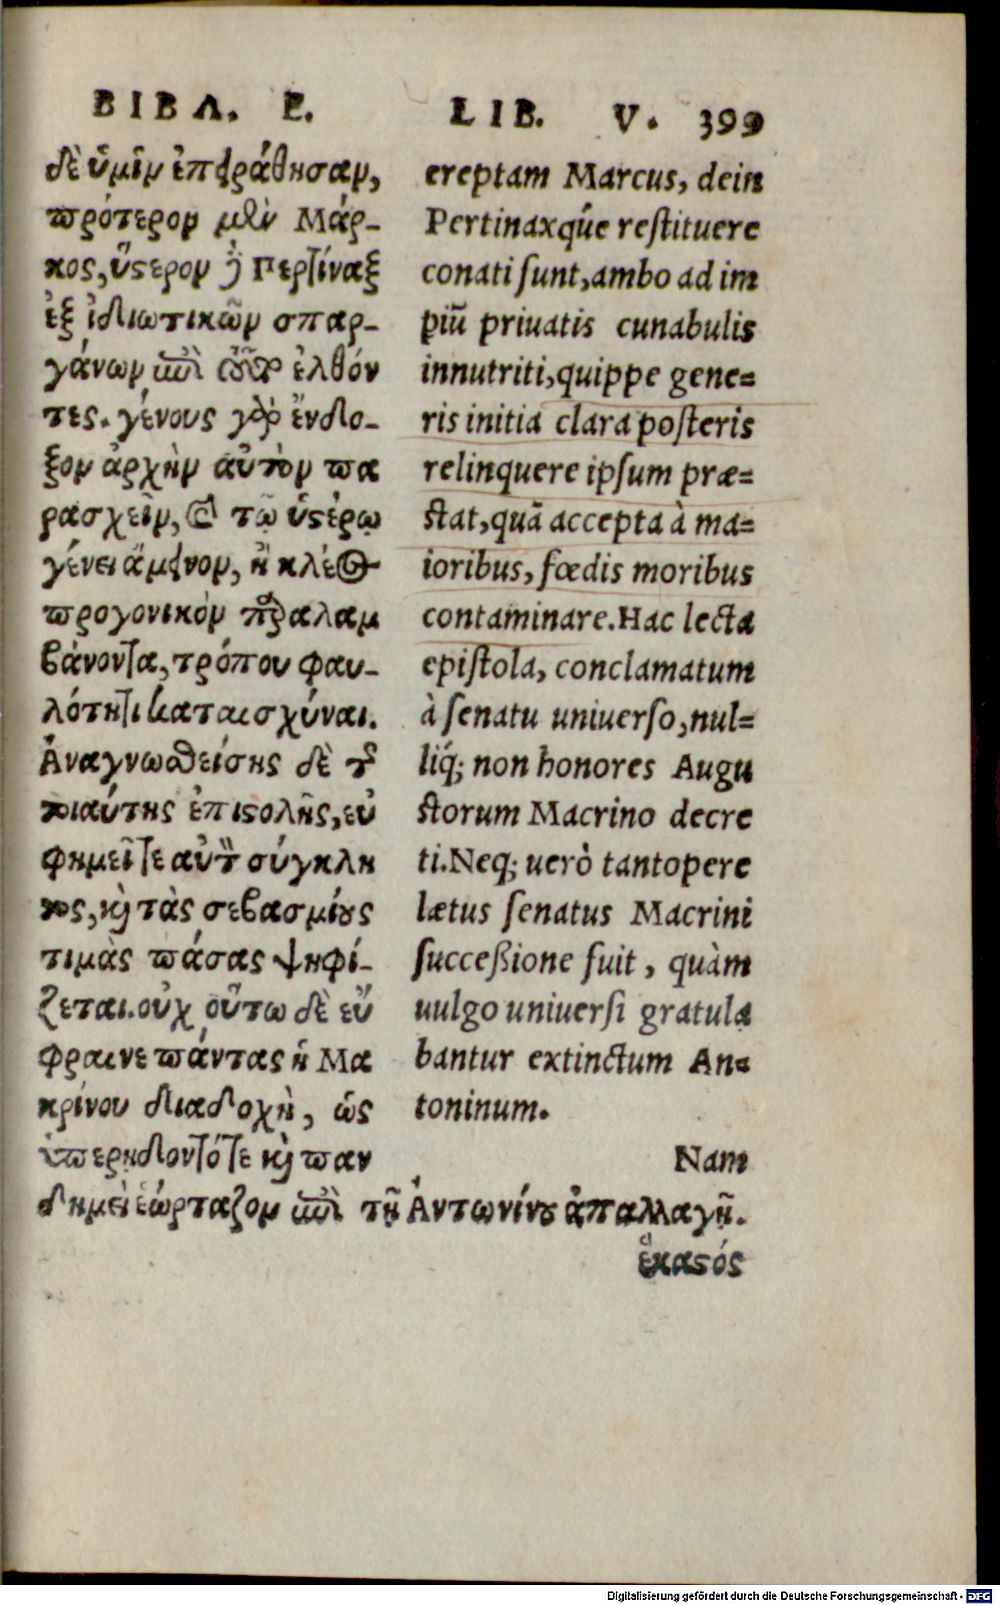 ΒΙΒΛ. Ε.
δὲ ὑμῖν ἐπειράθησαν,
πρότερον μὲν Μάρ-
κος, ὕστερον δὲ Περτίναξ
ἐξ ἰδιωτικῶν σπαρ-
γάνων ἐπὶ τοῦτο ἐλθόν
τες. γένους γὰρ ἔνδο-
ξον ἀρχὴν αὐτὸν πα
ρασχεῖν, καὶ τῷ ὑστέρῳ
γένει ἄμεινον, ἢ κλέος
προγονικὸν παραλαμ
βάνοντα, τρόπου φαυ-
λότητι καταισχύναι.
Ἀναγνωσθείσης δὲ τῆς
τοιαύτης ἐπιστολῆς, εὐ
φημεῖ τε αὐτὸν σύγκλη
τος, καὶ τὰς σεβασμίους
τιμὰς πάσας ψηφί-
ζεται. οὐχ οὕτω δὲ εὔ
φραινε πάντας ἡ Μα
κρίνου διαδοχὴ, ὡς
ὑπερήδοντό τε καὶ παν
δημεὶ ἑώρταζον ἐπὶ τῇ Ἀντωνίνου ἀπαλλαγῇ.
ἕκαστός
LIB. V. 399
ereptam Marcus, dein
Pertinaxq́ue restituere
conati sunt, ambo ad im
piũ priuatis cunabulis
innutriti, quippe gene=
ris initia clara posteris
relinquere ipsum præ=
stat, quã accepta à ma=
ioribus, fœdis moribus
contaminare. Hac lecta
epistola, conclamatum
à senatu uniuerso, nul=
liq́; non honores Augu
storum Macrino decre
ti. Neq; uerò tantopere
lætus senatus Macrini
successione fuit, quàm
uulgo uniuersi gratula
bantur extinctum An=
toninum.
Nam
Digitalisierung gefördert durch die Deutsche Forschungsgemeinschaft - DFG